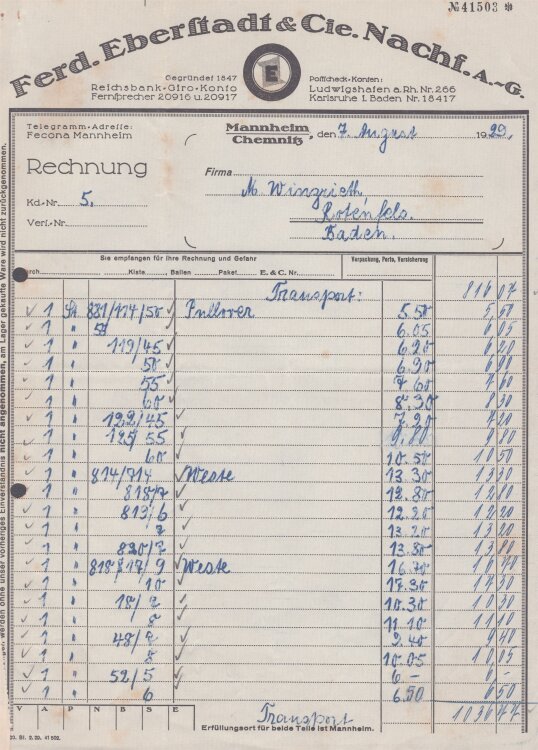 № 41503 ✻
Ferd. Eberstadt & Cie. Nachf. A.-G.
E
Gegründet 1847
Reichsbank-Giro-Konto
Fernsprecher 20916 u. 20917
Postscheck-Konten:
Ludwigshafen a. Rh. Nr. 266
Karlsruhe i. Baden Nr. 18417
Telegramm-Adresse:
Fecona Mannheim
Mannheim
Chemnitz, den 7. August 1929.
Rechnung
Firma
M. Wingrieth
Rotenfels.
Baden.
Kd.-Nr. 5.
Verl.-Nr.
Sie empfangen für Ihre Rechnung und Gefahr
Verpackung, Porto, Versicherung
durch Kiste Ballen Paket E. & C. Nr.
Transport: 816 07
1 St. 881/114/50 Pullover 5.50 5,50
1 " 55 6.05 6 05
1 " 119/45 6.20 6 20
1 " 50 6.90 6 90
1 " 55 7 60 7 60
1 " 60 8,30 8 30
1 " 122/45 7.20 7 20
1 " 125/55 9.80 9 80
1 " 60 10.50 10 50
1 " 814/714 Weste 13 30 13 30
1 " 818/7 12.80 12 80
1 " 819/6 12.20 12 20
1 " 7 13.20 13 20
1 " 820/7 13.80 13 80
1 " 818/17/9 Weste 16.70 16 70
1 " 10 17.30 17 30
1 " 18/7 10.30 10 30
1 " 8 11.10 11 10
1 " 48/7 9.40 9 40
1 " 8 10.05 10,05
1 " 52/5 6.- 6.-
1 " 6 6.50 6 50
V A P N B S E
Transport 1036 77
Erfüllungsort für beide Teile ist Mannheim.
werden ohne unser vorheriges Einverständnis nicht angenommen, am Lager gekaufte Ware wird nicht zurückgenommen.